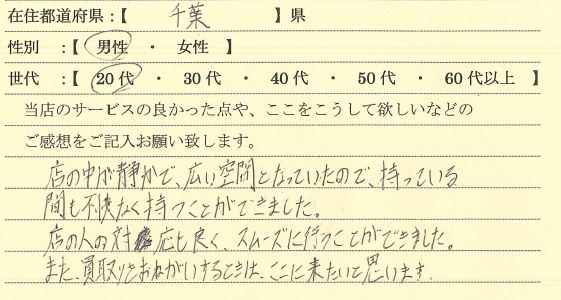 在住都道府県：【 千葉 】県
性別 ：【 男性 ・ 女性 】
世代 ：【 20代 ・ 30代 ・ 40代 ・ 50代 ・ 60代以上 】
当店のサービスの良かった点や、ここをこうして欲しいなどの
ご感想をご記入お願い致します。
店の中が静かで、広い空間となっていたので、持っている
間も不快なく持つことができました。
店の人の対応も良く、スムーズに行うことができました。
また、買取りをおねがいするときは、ここに来たいと思います。